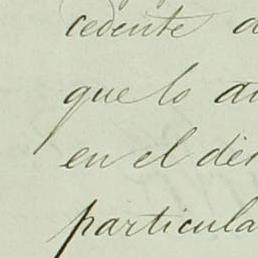 cedente
que lo
en el
particula